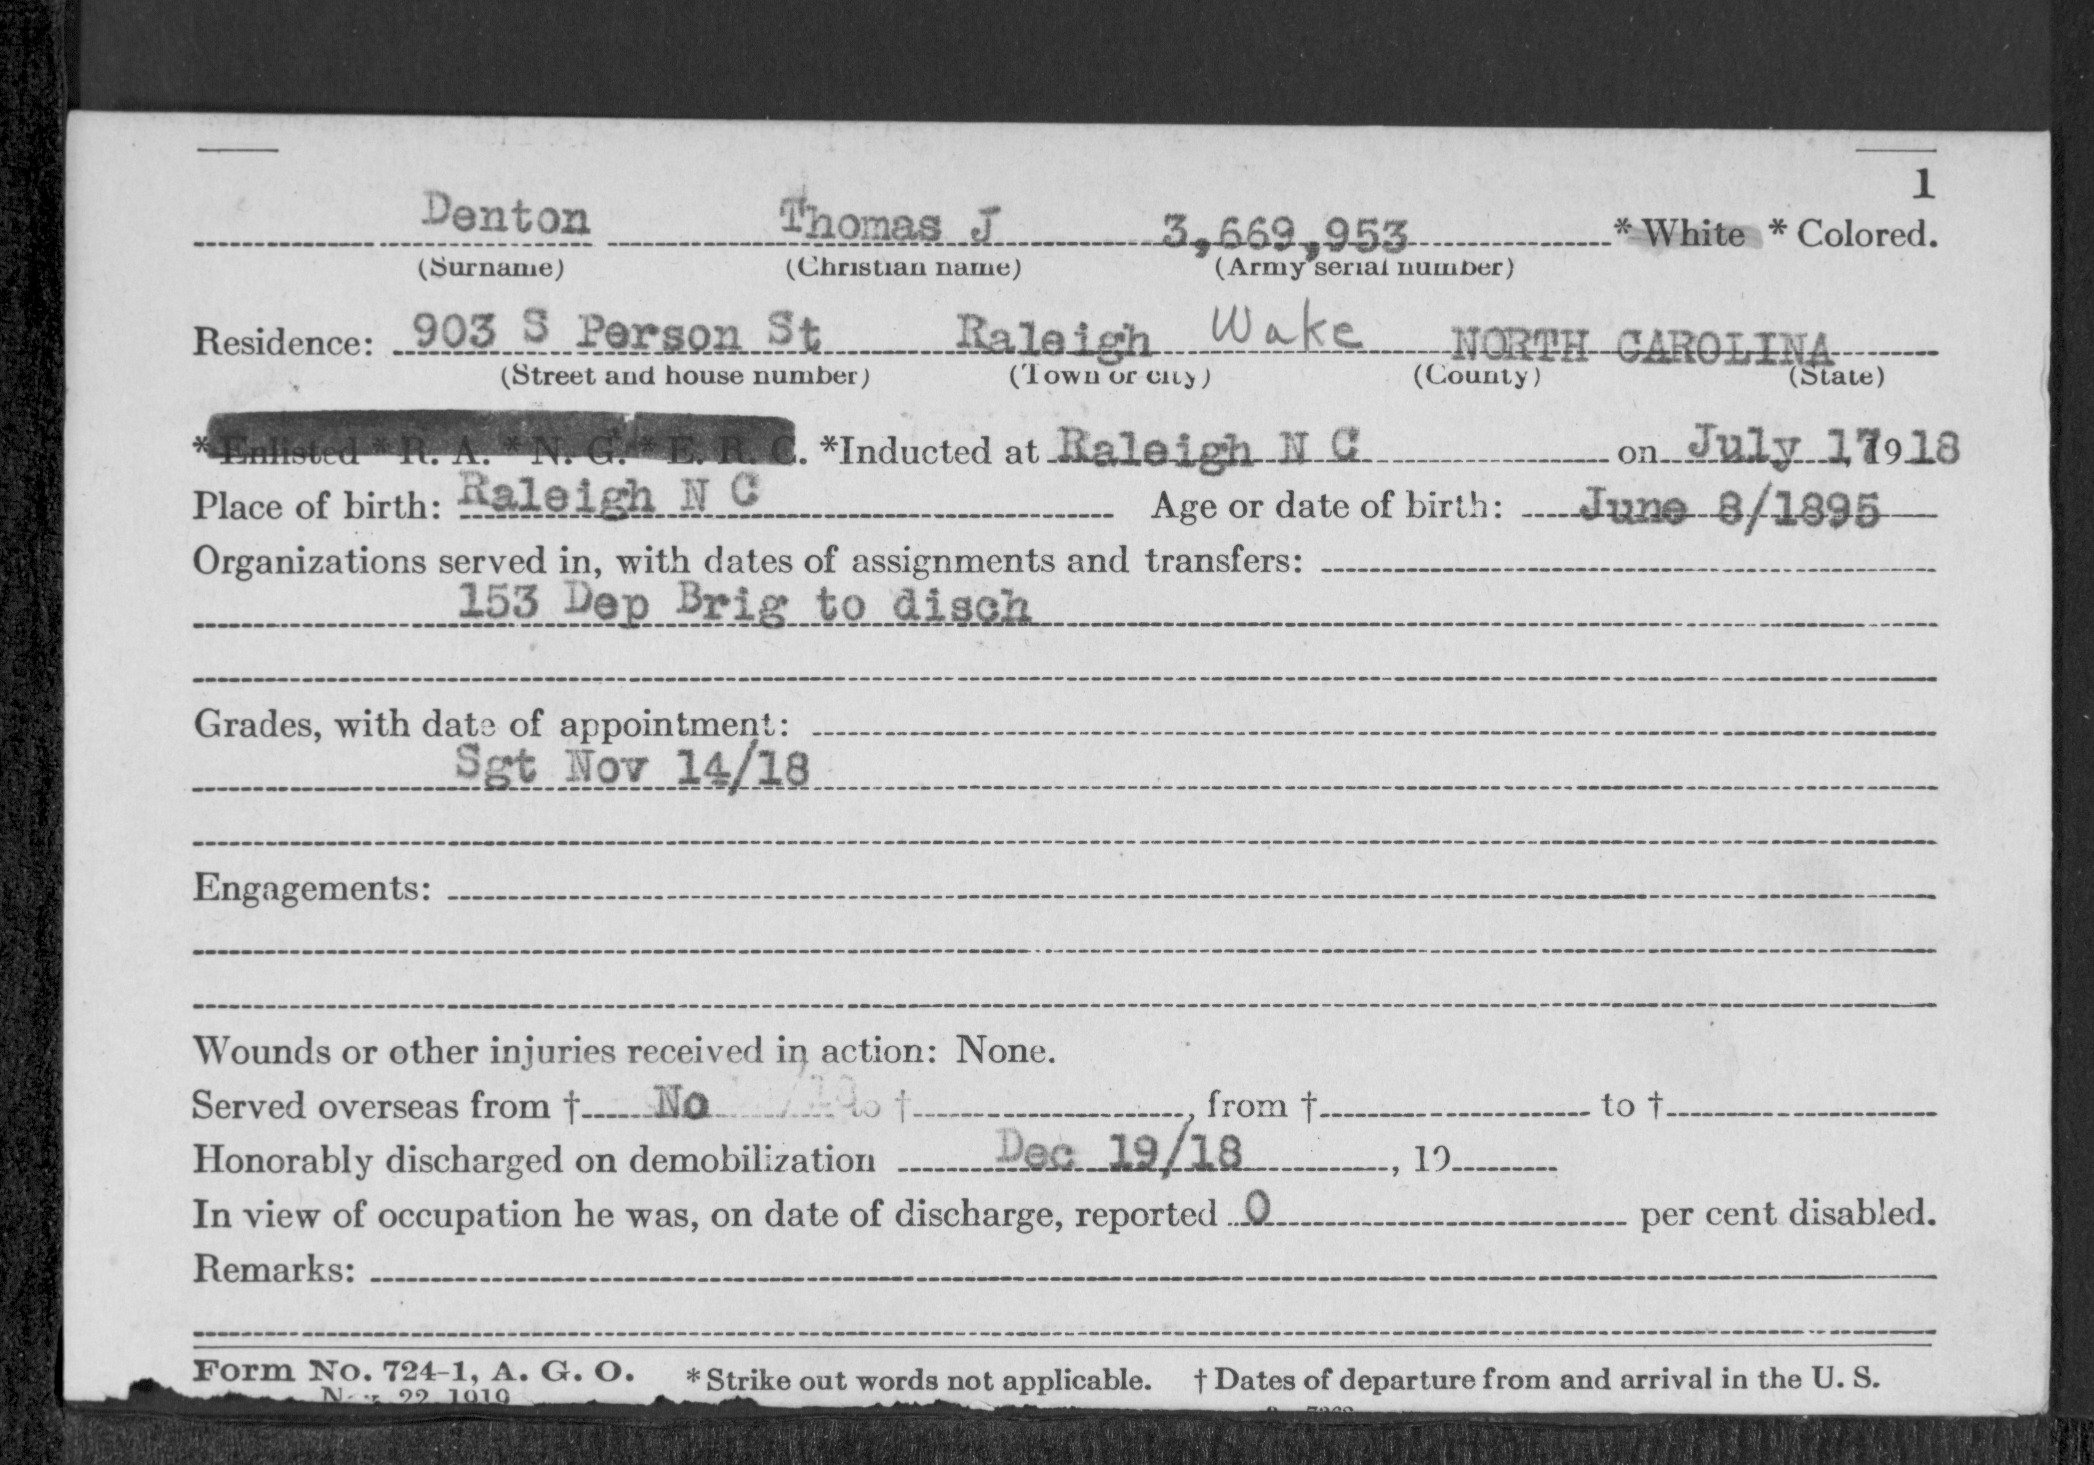 1
Denton Thomas J 3,669,953 * White * Colored.
(Surname) (Christian name) (Army serial number)
Residence: 903 S Person St Raleigh Wake NORTH CAROLINA
(Street and house number) (Town or city) (County) (State)
* Enlisted * R. A. * N. G. * E. R. C. *Inducted at Raleigh N C on July 17, 1918
Place of birth: Raleigh N C Age or date of birth: June 8/1895
Organizations served in, with dates of assignments and transfers:
153 Dep Brig to disch
Grades, with date of appointment:
Sgt Nov 14/18
Engagements:
Wounds or other injuries received in action: None.
Served overseas from † No to †, from † to †
Honorably discharged on demobilization Dec 19/18, 19
In view of occupation he was, on date of discharge, reported 0 per cent disabled.
Remarks:
Form No. 724-1, A. G. O. * Strike out words not applicable. † Dates of departure from and arrival in the U. S.
22 1919